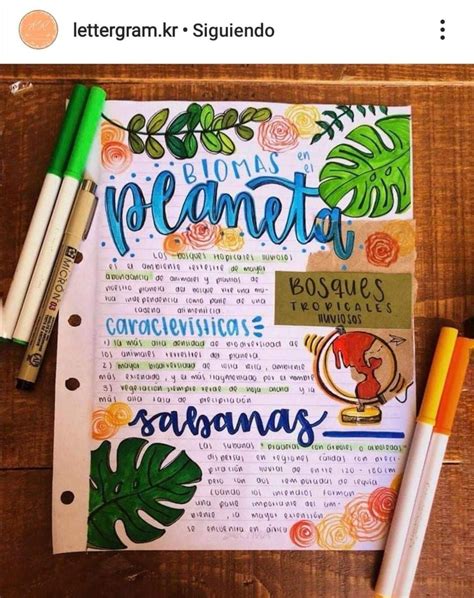 lettergram.kr • Siguiendo
BIOMAS en
el
planeta
Los bosques tropicales lluviosos
es el ambiente terrestre de mayor
abundancia de animales y plantas de
nuestro planeta del bosque vive una mu-
tua independencia como parte de una
cadena alimenticia
BOSQUES
TROPICALES
LLUVIOSOS
características
1) la más alta densidad de biodiversidad de
los animales terrestres del planeta.
2) mayor biodiversidad de ambiente
más extenado, y el más por el hombre
3) vegetación siempre verde de hoja ancha y la
más alta tasa de precipitación
sabanas
Las sabanas praderas con árboles o arboledas
dispersas en regiones cálidas con preci-
pitación lluvial de entre 120 - 160 cm
pero con dos temporadas de sequía
cuando los incendios forman
una parte importante del am-
biente, la mayor extensión
se encuentra en áfrica
MICRON